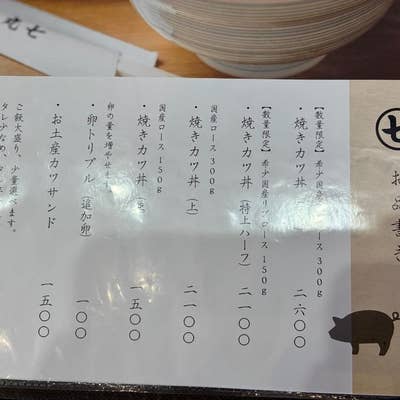 七
お品書き
【数量限定】希少国産リブロース 300g
・焼きカツ丼 二六〇〇
【数量限定】希少国産リブロース 150g
・焼きカツ丼(特上ハーフ) 二一〇〇
国産ロース 300g
・焼きカツ丼(上) 二一〇〇
国産ロース 150g
・焼きカツ丼 一五〇〇
卵の量を増やせます。
・卵トリプル(追加卵) 一〇〇
・お土産カツサンド 一五〇〇
ご飯大盛り、少量選べます。